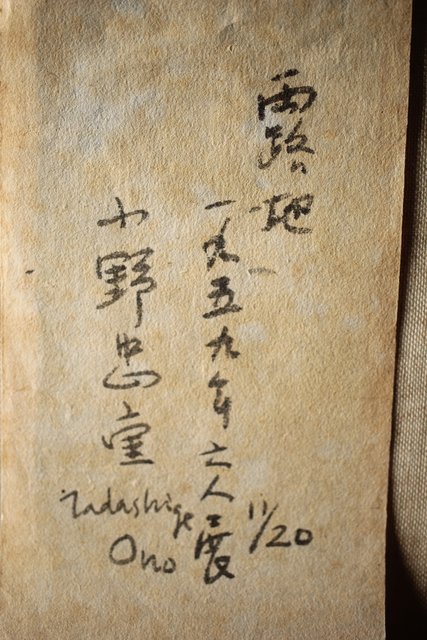 露地
一九五九年六人展
小野忠重
Tadashige
Ono
11/20